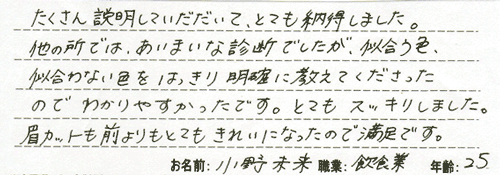 たくさん説明していだだいて、とても納得しました。
他の所では、あいまいな診断でしたが、似合う色、
似合わない色をはっきり明確に教えてくださった
のでわかりやすかったです。とてもスッキリしました。
眉カットも前よりもとてもきれいになったので満足です。
お名前:小野未来 職業:飲食業 年齢:25